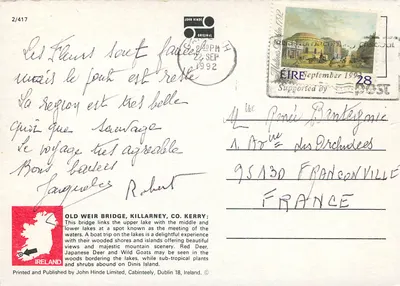 2/417
JOHN HINDE
ORIGINAL
PM
22 SEP
1992
ÉIRE
28
September 199
Supported by
POST
Les Fleurs sont fanées
mais le pont est resté
La region est très belle
quoi que sauvage
Le voyage très agréable
Bons baisers
Jacqueline Robert
René
1 Avenue des Orchidées
95130 FRANCONVILLE
FRANCE
IRELAND
OLD WEIR BRIDGE, KILLARNEY, CO. KERRY:
This bridge links the upper lake with the middle and
lower lakes at a spot known as the meeting of the
waters. A boat trip on the lakes is a delightful experience
with their wooded shores and islands offering beautiful
views and majestic mountain scenery. Red Deer,
Japanese Deer and Wild Goats may be seen in the
woods bordering the lakes, while sub-tropical plants
and shrubs abound on Dinis Island.
Printed and Published by John Hinde Limited, Cabinteely, Dublin 18, Ireland. ©